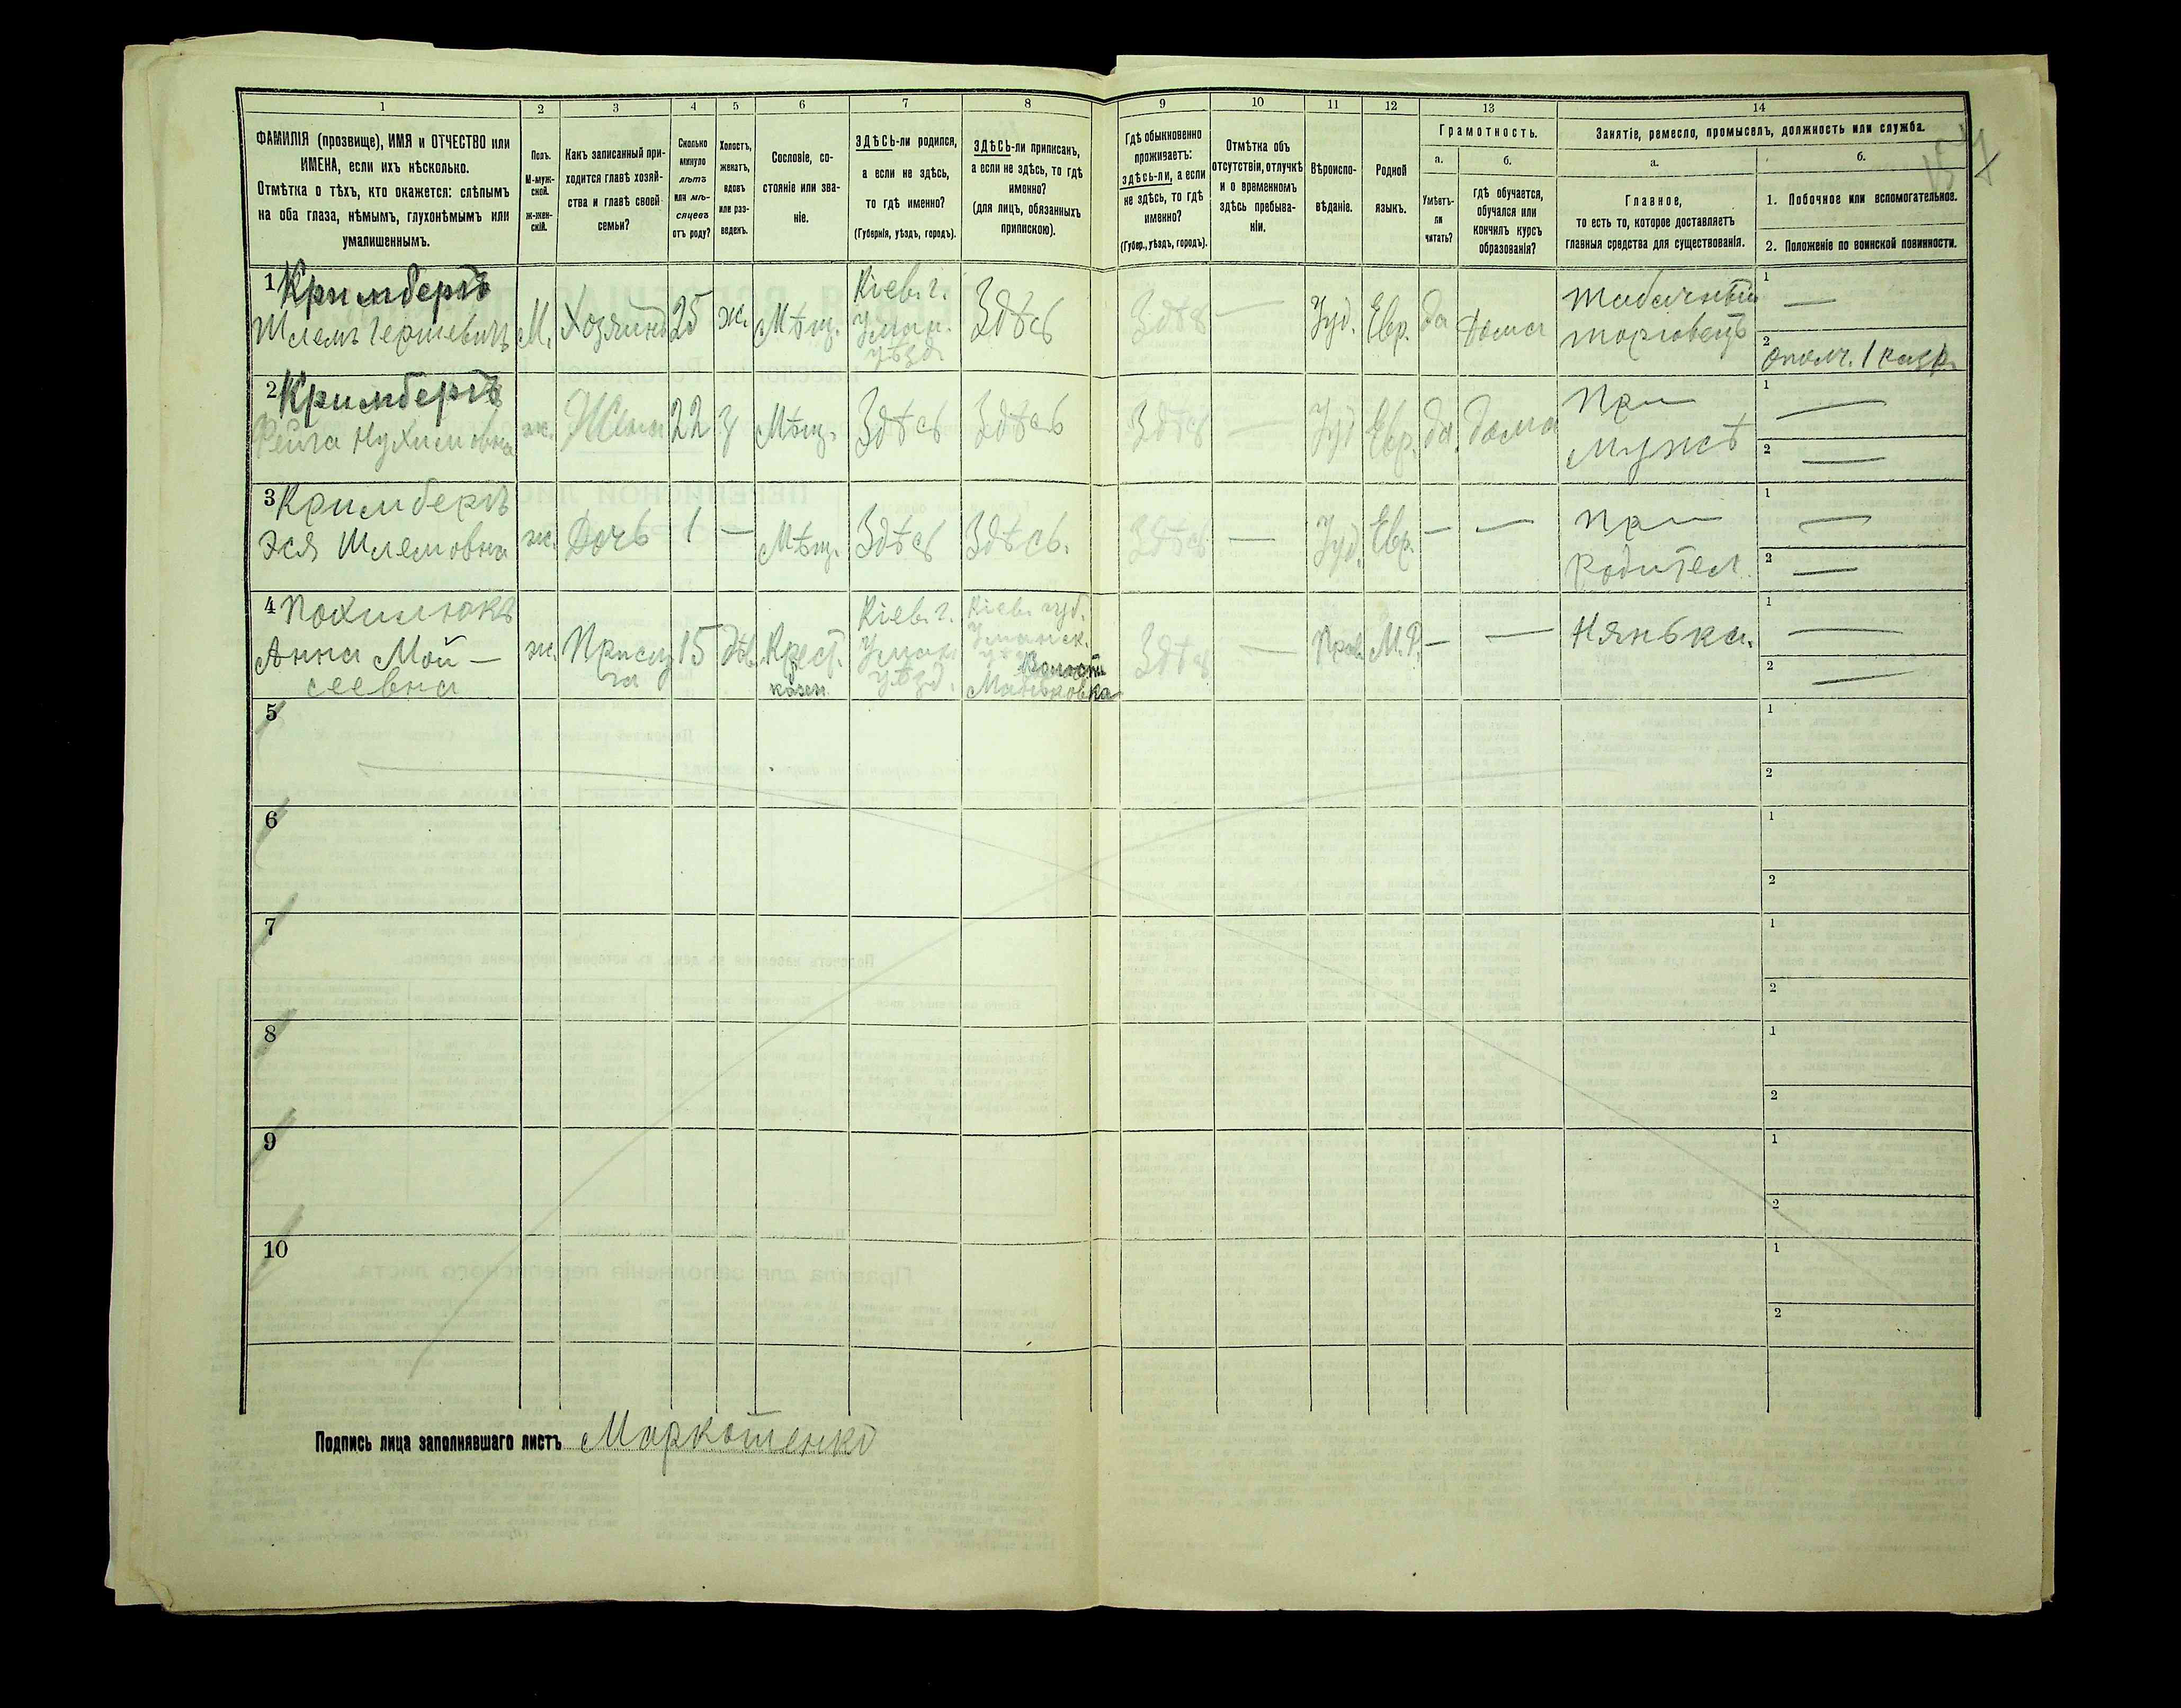 1 2 3 4 5 6 7 8 9 10 11 12 13 14
ФАМИЛІЯ (прозвище), ИМЯ и ОТЧЕСТВО или
ИМЕНА, если ихъ нѣсколько.
Отмѣтка о тѣхъ, кто окажется: слѣпымъ
на оба глаза, нѣмымъ, глухонѣмымъ или
умалишеннымъ.
Полъ.
М-муж-
ской.
Ж-жен-
скій.
Какъ записанный при-
ходится главѣ хозяй-
ства и главѣ своей
семьи?
Сколько
минуло
лѣтъ
или мѣ-
сяцевъ
отъ роду?
Холостъ,
женатъ,
вдовъ
или раз-
веденъ.
Сословіе, со-
стояніе или зва-
ніе.
ЗДѢСЬ-ли родился,
а если не здѣсь,
то гдѣ именно?
(Губернія, уѣздъ, городъ).
ЗДѢСЬ-ли приписанъ,
а если не здѣсь, то гдѣ
именно?
(для лицъ, обязанныхъ
припискою).
Гдѣ обыкновенно
проживаетъ:
здѣсь-ли, а если
не здѣсь, то гдѣ
именно?
(Губер., уѣздъ, городъ).
Отмѣтка объ
отсутствіи, отлучкѣ
и о временномъ
здѣсь пребыва-
ніи.
Вѣроиспо-
вѣданіе.
Родной
языкъ.
Грамотность.
а.
Умѣетъ-
ли
читать?
б.
гдѣ обучается,
обучался или
кончилъ курсъ
образованія?
Занятіе, ремесло, промыселъ, должность или служба.
а.
Главное,
то есть то, которое доставляетъ
главныя средства для существованія.
б.
1. Побочное или вспомогательное.
2. Положеніе по воинской повинности.
1 Кримбергъ
Шлемъ Гершевичъ
М.
Хозяинъ
25
ж.
Мѣщ.
Кіев. г.
Уман.
уѣзд.
Здѣсь
Здѣсь
—
Іуд.
Евр.
да
дома
табачный
торговецъ
1 —
2 ополч. 1 разр.
2 Кримбергъ
Фейга Нухимовна
ж.
Жена
22
З
Мѣщ.
Здѣсь
Здѣсь
Здѣсь
—
Іуд
Евр.
да.
дома
При
мужѣ
1 —
2 —
3 Кримбергъ
Эся Шлемовна
ж.
Дочь
1
—
Мѣщ.
Здѣсь
Здѣсь.
Здѣсь
—
Іуд.
Евр.
—
—
При
родител.
1 —
2 —
4 Похилюкъ
Анна Мой-
сеевна
ж.
Прислу
га
15
дѣв.
Крест.
казен.
Кіев. г.
Уман.
уѣзд.
Кіев. губ.
Уманск.
Волость
Маньковка
Здѣсь
—
Прав.
М.Р.
—
—
Нянька.
1 —
2 —
5 1
2
6 1
2
7 1
2
8 1
2
9 1
2
10 1
2
Подпись лица заполнявшаго листъ Маркотенко